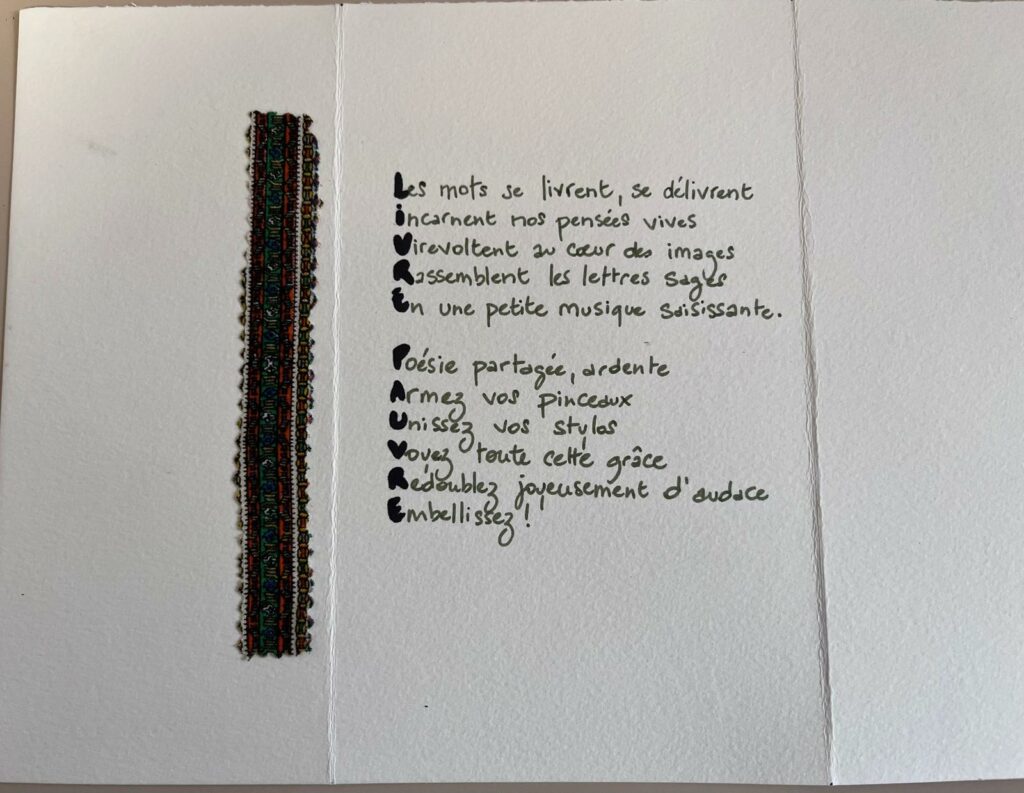 Les mots se livrent, se délivrent
incarnent nos pensées vives
Virevoltent au cœur des images
Rassemblent les lettres sages
En une petite musique saisissante.
Poésie partagée, ardente
Armez vos pinceaux
Unissez vos stylos
Voyez toute cette grâce
Redoublez joyeusement d'audace
Embellissez !